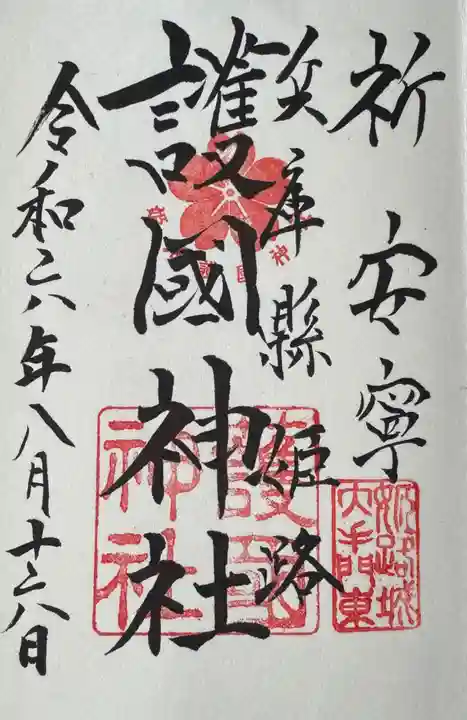 祈 安寧
兵庫縣姫路
護國神社
令和六年八月十六日
姫路城
大手門東
護國
神社